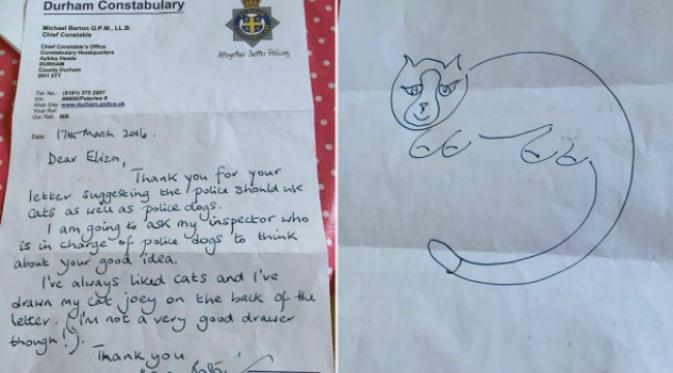 Durham Constabulary
Michael Barton Q.P.M., LL.B.
Chief Constable
Chief Constable's Office
Constabulary Headquarters
Aykley Heads
DURHAM
County Durham
DH1 5TT
Altogether Better Policing
Tel. No.: (0191) 375 2207
DX:
Web Site: www.durham.police.uk
Your Ref:
Our Ref: MB
Date: 17th March 2016.
Dear Eliza,
Thank you for your
letter suggesting the police should use
cats as well as police dogs.
I am going to ask my inspector who
is in charge of police dogs to think
about your good idea.
I've always liked cats and I've
drawn my cat joey on the back of the
letter. (I'm not a very good drawer
though!).
Thank you